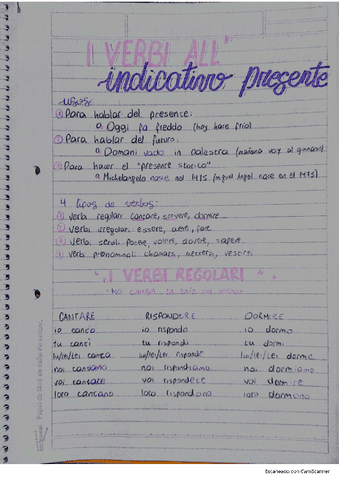 I VERBI ALL'
indicativo presente
usos:
Para hablar del presente:
Oggi fa freddo (hoy hace frío)
Para hablar del futuro:
Domani vado in palestra (mañana voy al gimnasio)
Para hacer el "presente storico"
Michelangelo nasce nel 1475
4 tipos de verbos:
verbi regolari: cantare, scrivere, dormire
verbi irregolari: essere, avere, fare
verbi servili: potere, volere, dovere, sapere
verbi pronominali:
I VERBI REGOLARI
NO CAMBIA
CANTARE RISPONDERE DORMIRE
io canto io rispondo io dormo
tu canti tu rispondi tu dormi
lui/lei/Lei canta lui/lei/Lei risponde lui/lei/Lei dorme
noi cantiamo noi rispondiamo noi dormiamo
voi cantate voi rispondete voi dormite
loro cantano loro rispondono loro dormono
Escaneado con CamScanner